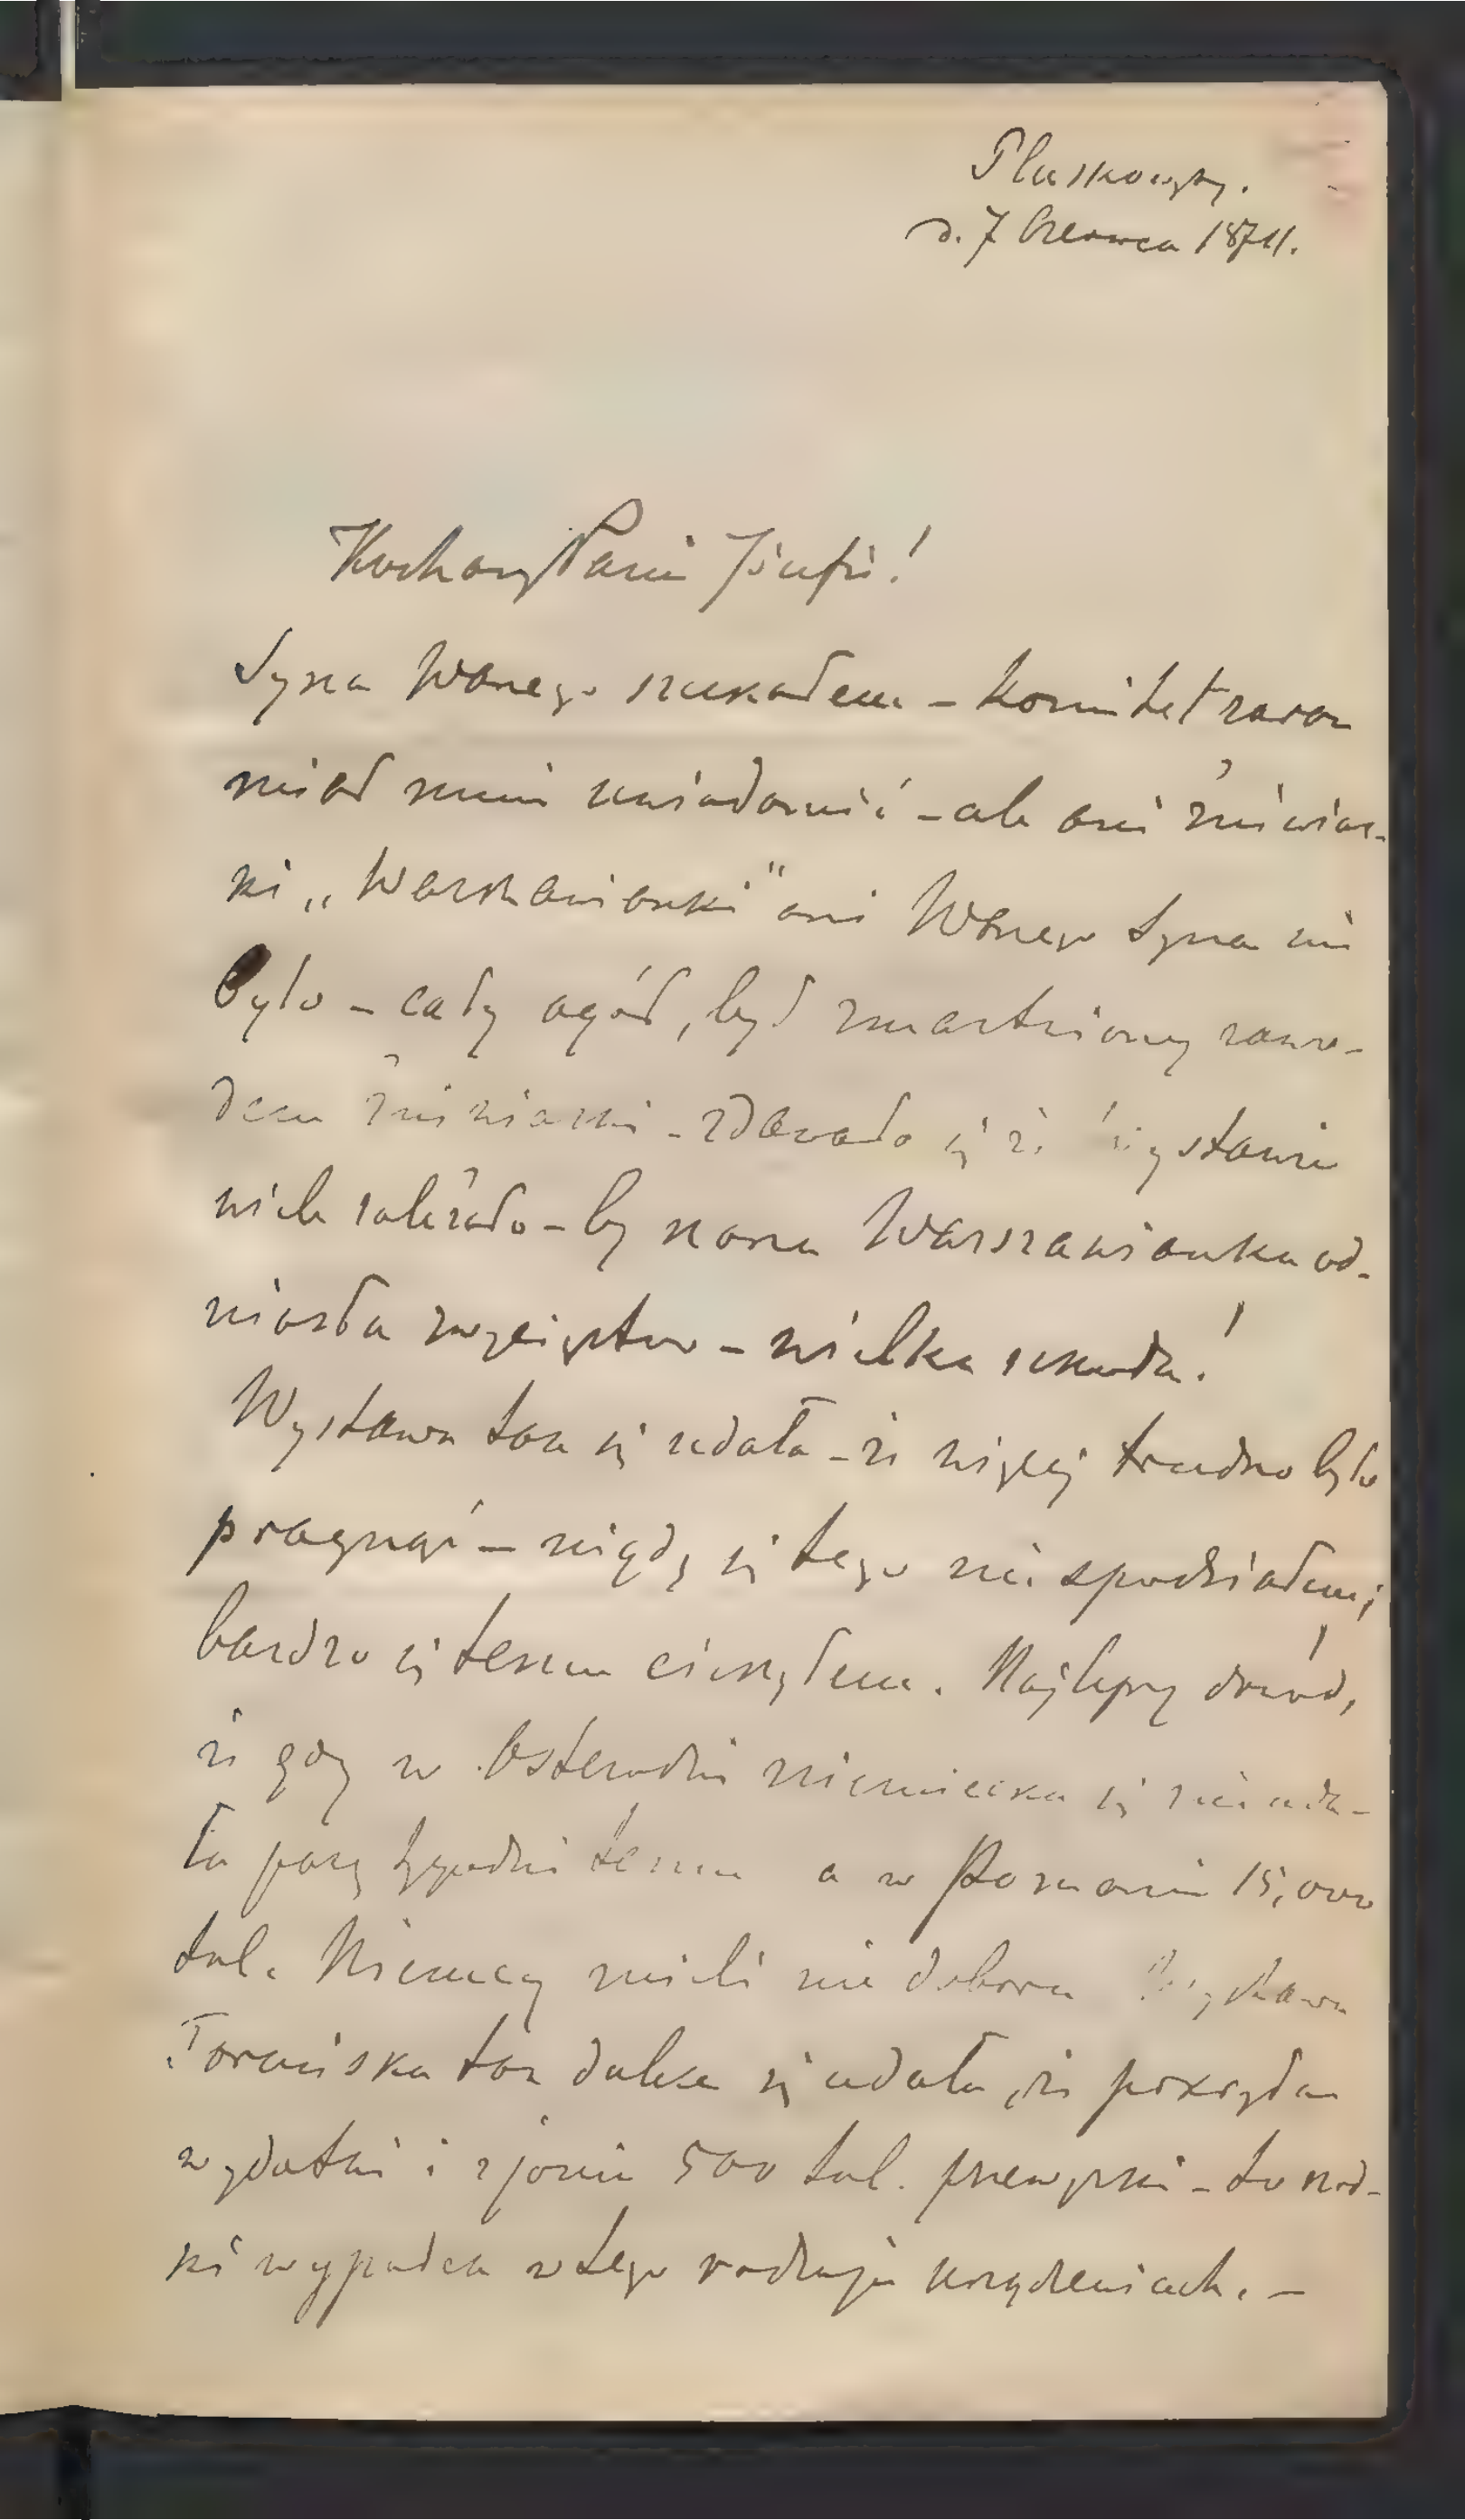 Pluskowęsy.
d. 7 Czerwca 1874.
Kochany Panie Józefie!
Syna Wanego szukałem – komitet zaraz
miał mnie uwiadomić – ale ani żniwiar-
ki „Warszawianki" ani Wanego Syna nie
było – cały ogół, był zmartwiony zawo-
dem żniwiarki – zdawało się że wystawie
wiele zależało – by nasza Warszawianka od-
niosła zwycięztwo – wielka szkoda!
Wystawa tak się udała – że więcej trudno było
pragnąć – nigdy się tego nie spodziałem;
bardzo się temu cieszyłem. Najlepszy dowód,
że gdy w Osterodzie niemiecka się nie uda-
ła parę tygodni temu a w Poznaniu 15,000
tal. Niemcy mieli nie doboru Wystawa
Toruńska tak dalece się udała, że pokryła
wydatki i zjawie 500 tal. przewyżki – to rzad-
ki wypadek w tego rodzaju urządzeniach. –